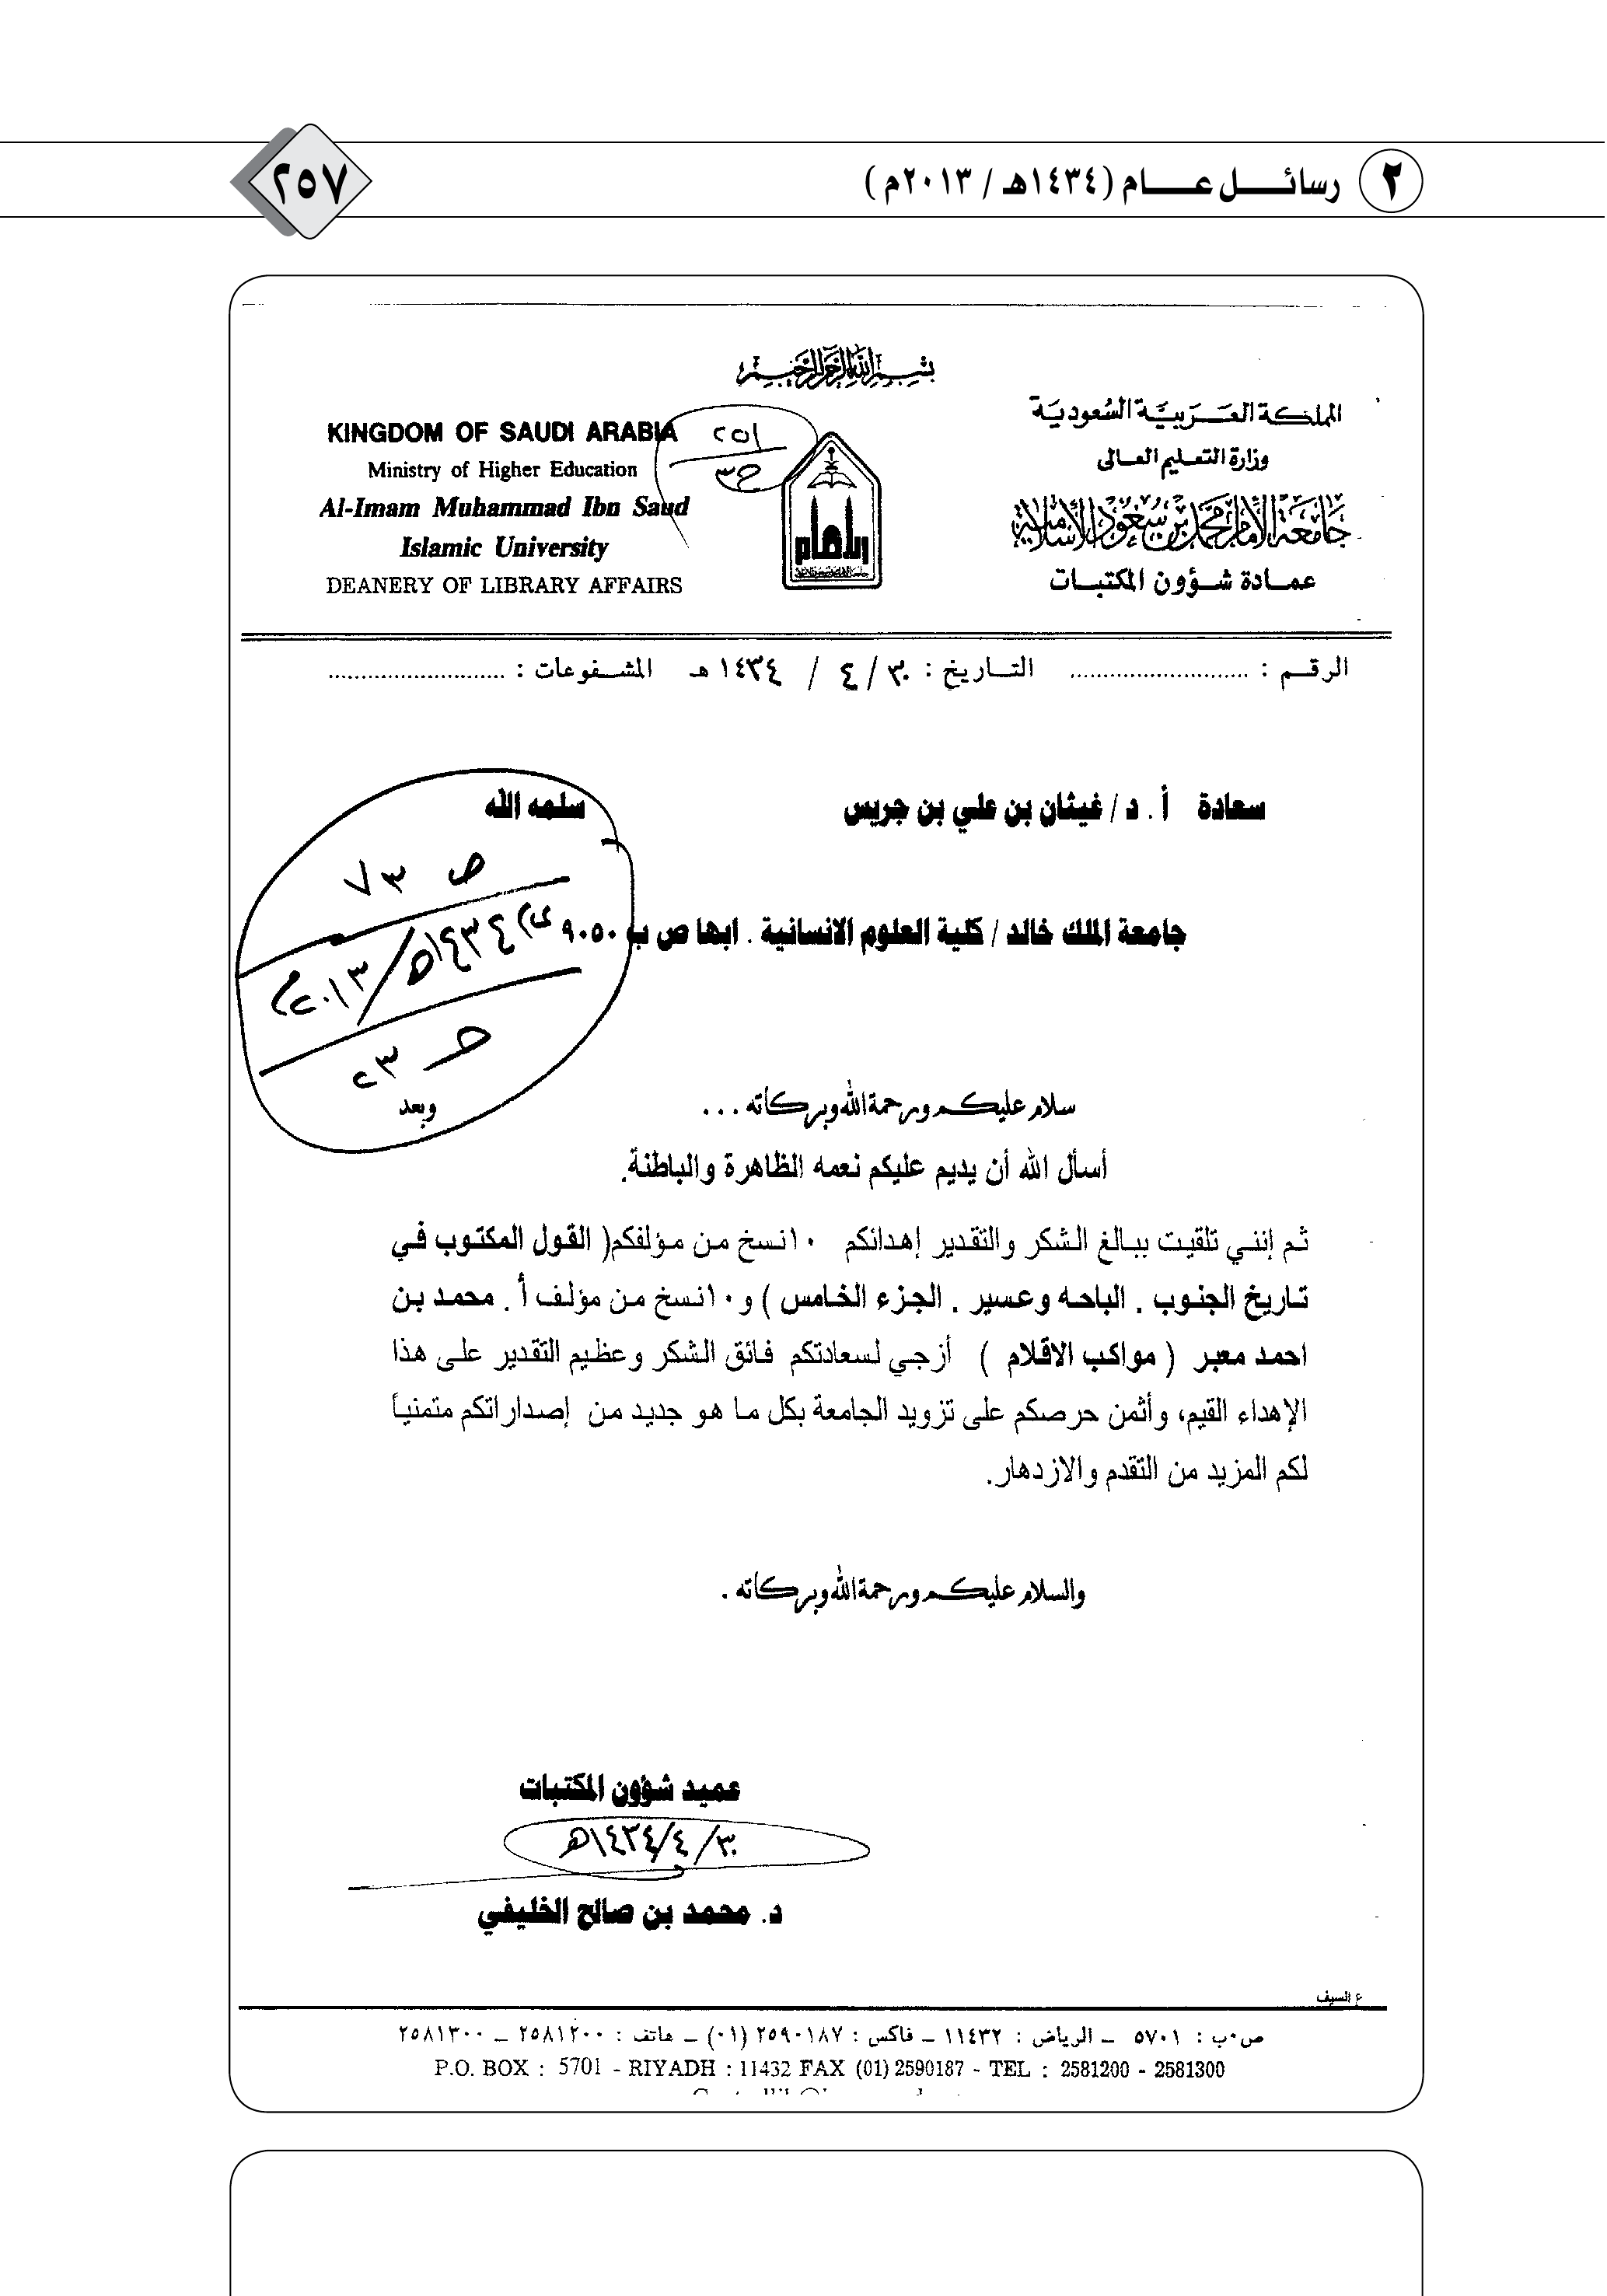 ٢ رسائل عام (١٤٣٤هـ / ٢٠١٣م)
٢٥٧
بسم الله الرحمن الرحيم
المملكة العربية السعودية
وزارة التعليم العالى
جامعة الإمام محمد بن سعود الإسلامية
عمادة شؤون المكتبات
٢٥١
ج٣
KINGDOM OF SAUDI ARABIA
Ministry of Higher Education
Al-Imam Muhammad Ibn Saud
Islamic University
DEANERY OF LIBRARY AFFAIRS
الرقم : ........................... التاريخ : ٣٠ / ٤ / ١٤٣٤ هـ المشفوعات : ...........................
سعادة أ . د / غيثان بن علي بن جريس سلمه الله
جامعة الملك خالد / كلية العلوم الانسانية . ابها ص ب ٩٠٥٠
ص ٧٣
١٤٣٤هـ / ٢٠١٣م
ح ٢٣
سلام عليكم ورحمة الله وبركاته ... وبعد
أسأل الله أن يديم عليكم نعمه الظاهرة والباطنة.
ثم إنني تلقيت ببالغ الشكر والتقدير إهدائكم ١٠نسخ من مؤلفكم( القول المكتوب في
تاريخ الجنوب . الباحه وعسير . الجزء الخامس ) و١٠نسخ من مؤلف أ . محمد بن
احمد معبر ( مواكب الاقلام ) أزجي لسعادتكم فائق الشكر وعظيم التقدير على هذا
الإهداء القيم، وأثمن حرصكم على تزويد الجامعة بكل ما هو جديد من إصداراتكم متمنياً
لكم المزيد من التقدم والازدهار.
والسلام عليكم ورحمة الله وبركاته .
عميد شؤون المكتبات
٣٠/٤/١٤٣٤هـ
د. محمد بن صالح الخليفي
ع السيف
ص٠ب : ٥٧٠١ – الرياض : ١١٤٣٢ – فاكس : ٢٥٩٠١٨٧ (٠١) – هاتف : ٢٥٨١٢٠٠ – ٢٥٨١٣٠٠
P.O. BOX : 5701 - RIYADH : 11432 FAX (01) 2590187 - TEL : 2581200 - 2581300